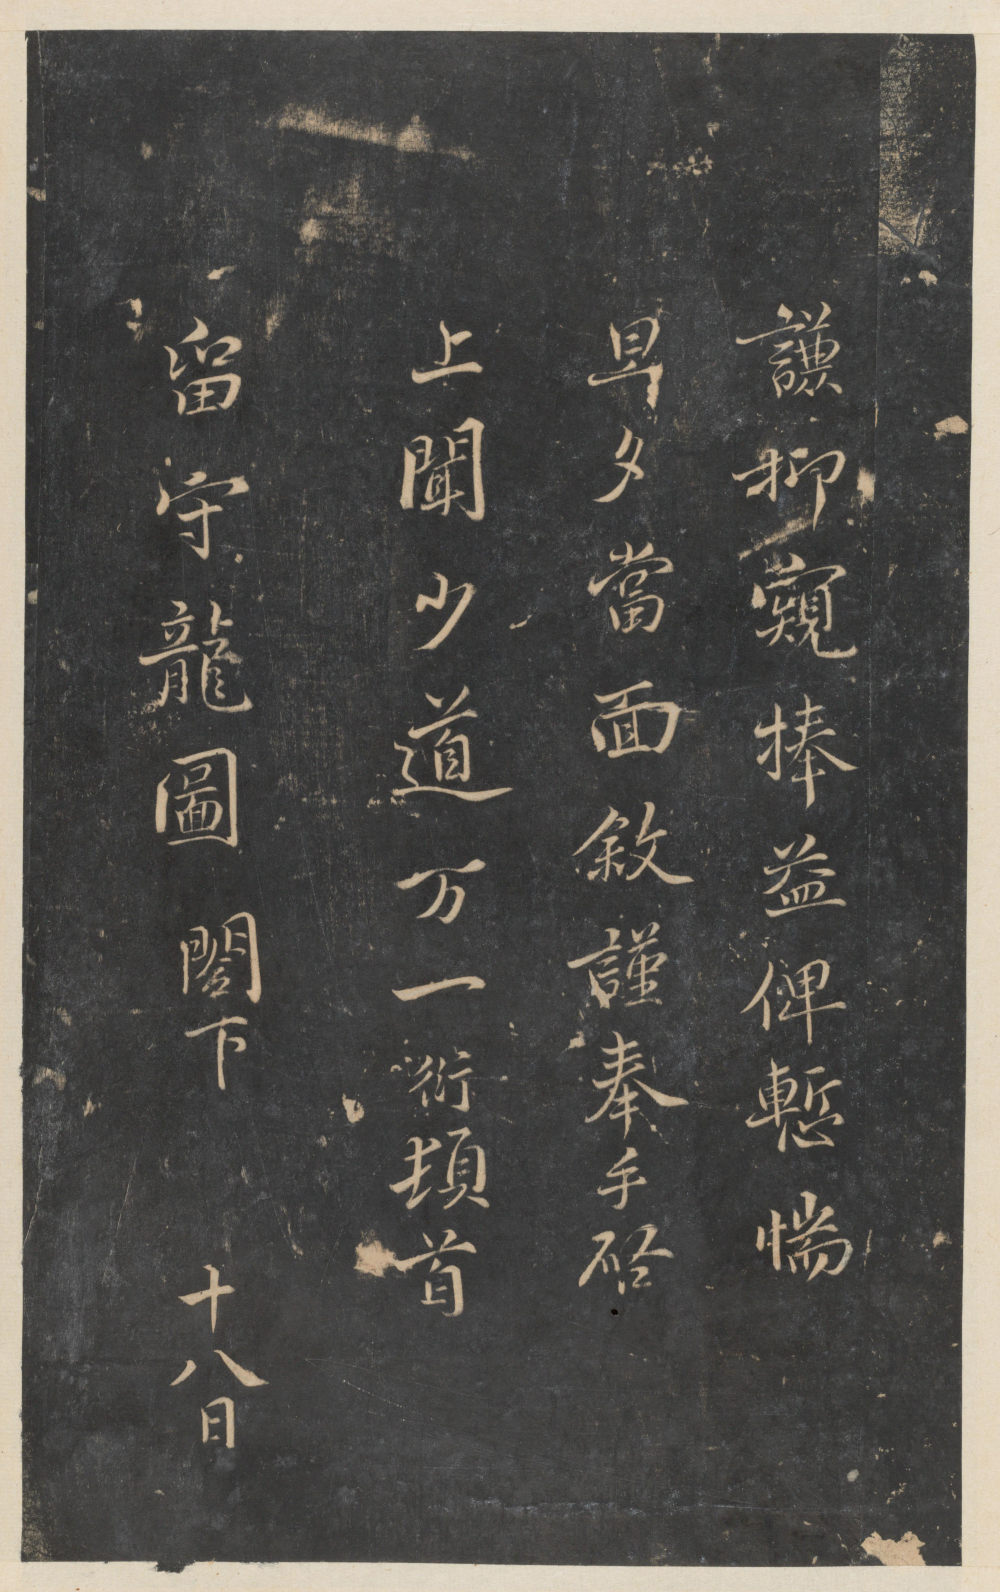 謙抑窺捧益俾慙惴
早夕當面敘謹奉手啓
上聞少道万一衍頓首
留守龍圖閣下 十八日